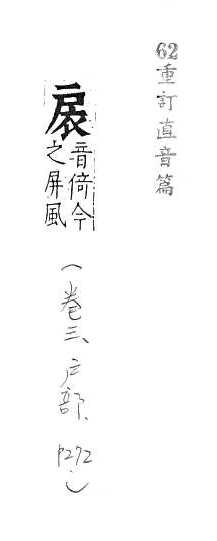 62重訂直音篇
扆
音倚今
之屏風
(卷三、戶部、P272.)